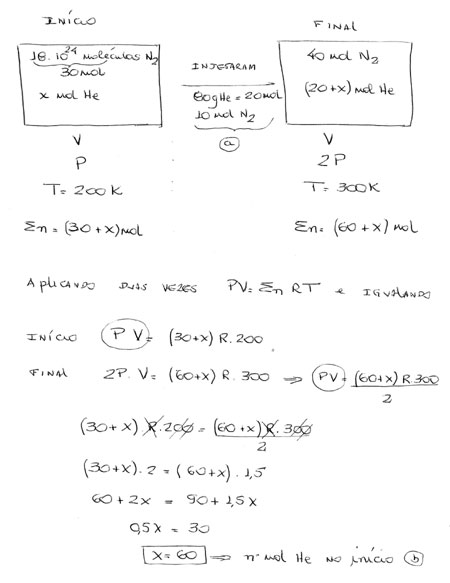 INÍCIO
FINAL
18.10²⁴ moléculas N₂
30mol
x mol He
INJETARAM
80g He = 20mol
10 mol N₂
(a)
40 mol N₂
(20+x) mol He
V
P
T = 200 K
V
2P
T = 300K
Σn = (30+x) mol
Σn = (60+x) mol
APLICANDO DUAS VEZES PV = Σn RT e IGUALANDO
INÍCIO PV = (30+x) R. 200
FINAL 2P. V = (60+x) R. 300 ⇒ PV = (60+x) R 300
2
(30+x) R. 200 = (60+x) R. 300
2
(30+x). 2 = (60+x). 1,5
60 + 2x = 90 + 1,5x
0,5x = 30
x = 60 ⇒ nº mol He no início (b)